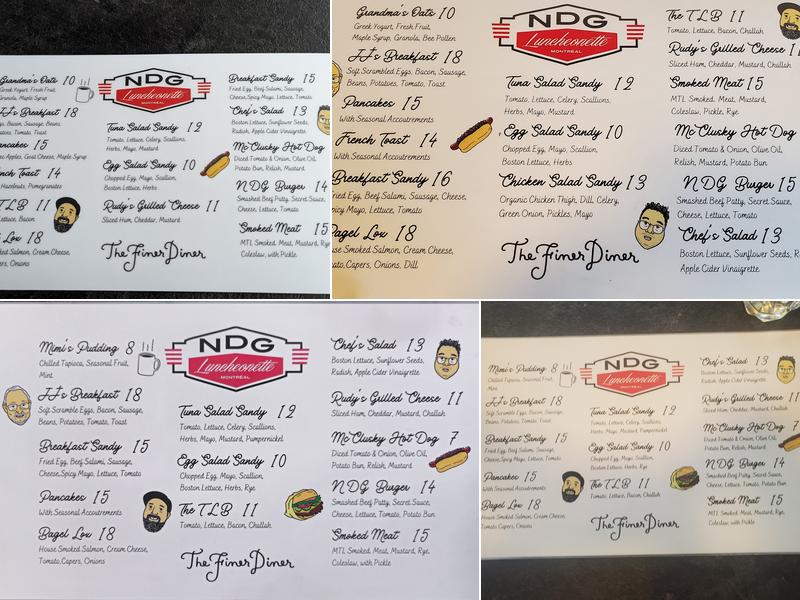 Grandma's Oats 10
Greek Yogurt, Fresh Fruit,
Granola, Maple Syrup
JJ's Breakfast 18
Eggs, Bacon, Sausage, Beans,
Potatoes, Tomato, Toast
Pancakes 15
Apples, Goat Cheese, Maple Syrup
French Toast 14
Hazelnuts, Pomegranates
TLB 11
Lettuce, Bacon
Lox 18
Smoked Salmon, Cream Cheese,
Capers, Onions
NDG
Luncheonette
MONTRÉAL
Tuna Salad Sandy 12
Tomato, Lettuce, Celery, Scallions,
Herbs, Mayo, Mustard
Egg Salad Sandy 10
Chopped Egg, Mayo, Scallion,
Boston Lettuce, Herbs
Rudy's Grilled Cheese 11
Sliced Ham, Cheddar, Mustard
The Finer Diner
Breakfast Sandy 15
Fried Egg, Beef Salami, Sausage,
Cheese, Spicy Mayo, Lettuce, Tomato
Chef's Salad 13
Boston Lettuce, Sunflower Seeds,
Radish, Apple Cider Vinaigrette
McClusky Hot Dog
Diced Tomato & Onion, Olive Oil,
Potato Bun, Relish, Mustard
NDG Burger 14
Smashed Beef Patty, Secret Sauce,
Cheese, Lettuce, Tomato, Potato Bun
Smoked Meat 15
MTL Smoked Meat, Mustard, Rye,
Coleslaw, with Pickle
Grandma's Oats 10
Greek Yogurt, Fresh Fruit,
Maple Syrup, Granola, Bee Pollen
JJ's Breakfast 18
Soft Scrambled Eggs, Bacon, Sausage,
Beans, Potatoes, Tomato, Toast
Pancakes 15
With Seasonal Accoutrements
French Toast 14
With Seasonal Accoutrements
Breakfast Sandy 16
Fried Egg, Beef Salami, Sausage, Cheese,
Spicy Mayo, Lettuce, Tomato
Bagel Lox 18
House Smoked Salmon, Cream Cheese,
Tomato, Capers, Onions, Dill
NDG
Luncheonette
MONTRÉAL
Tuna Salad Sandy 12
Tomato, Lettuce, Celery, Scallions,
Herbs, Mayo, Mustard
Egg Salad Sandy 10
Chopped Egg, Mayo, Scallion,
Boston Lettuce, Herbs
Chicken Salad Sandy 13
Organic Chicken Thigh, Dill, Celery,
Green Onion, Pickles, Mayo
The Finer Diner
The TLB 11
Tomato, Lettuce, Bacon, Challah
Rudy's Grilled Cheese
Sliced Ham, Cheddar, Mustard, Challah
Smoked Meat 15
MTL Smoked, Meat, Mustard,
Coleslaw, Pickle, Rye
McClusky Hot Dog
Diced Tomato & Onion, Olive Oil,
Relish, Mustard, Potato Bun
NDG Burger 15
Smashed Beef Patty, Secret Sauce,
Cheese, Lettuce, Tomato
Chef's Salad 13
Boston Lettuce, Sunflower Seeds,
Apple Cider Vinaigrette
Mimi's Pudding 8
Chilled Tapioca, Seasonal Fruit,
Mint
JJ's Breakfast 18
Soft Scramble Eggs, Bacon, Sausage,
Beans, Potatoes, Tomato, Toast
Breakfast Sandy 15
Fried Egg, Beef Salami, Sausage,
Cheese, Spicy Mayo, Lettuce, Tomato
Pancakes 15
With Seasonal Accoutrements
Bagel Lox 18
House Smoked Salmon, Cream Cheese,
Tomato, Capers, Onions
NDG
Luncheonette
MONTRÉAL
Tuna Salad Sandy 12
Tomato, Lettuce, Celery, Scallions,
Herbs, Mayo, Mustard, Pumpernickel
Egg Salad Sandy 10
Chopped Egg, Mayo, Scallion,
Boston Lettuce, Herbs, Rye
The TLB 11
Tomato, Lettuce, Bacon, Challah
The Finer Diner
Chef's Salad 13
Boston Lettuce, Sunflower Seeds,
Radish, Apple Cider Vinaigrette
Rudy's Grilled Cheese 11
Sliced Ham, Cheddar, Mustard, Challah
McClusky Hot Dog 7
Diced Tomato & Onion, Olive Oil,
Potato Bun, Relish, Mustard
NDG Burger 14
Smashed Beef Patty, Secret Sauce,
Cheese, Lettuce, Tomato, Potato Bun
Smoked Meat 15
MTL Smoked, Meat, Mustard, Rye,
Coleslaw, with Pickle
Mimi's Pudding 8
Chilled Tapioca, Seasonal Fruit,
Mint
JJ's Breakfast 18
Soft Scramble Eggs, Bacon, Sausage,
Beans, Potatoes, Tomato, Toast
Breakfast Sandy 15
Fried Egg, Beef Salami, Sausage,
Cheese, Spicy Mayo, Lettuce, Tomato
Pancakes 15
With Seasonal Accoutrements
Bagel Lox 18
House Smoked Salmon, Cream Cheese,
Tomato Capers, Onions
NDG
Luncheonette
MONTRÉAL
Tuna Salad Sandy 12
Tomato, Lettuce, Celery, Scallions,
Herbs, Mayo, Mustard, Pumpernickel
Egg Salad Sandy 10
Chopped Egg, Mayo, Scallion,
Boston Lettuce, Herbs, Rye
The TLB 11
Tomato, Lettuce, Bacon, Challah
The Finer Diner
Chef's Salad 13
Boston Lettuce, Sunflower Seeds,
Radish, Apple Cider Vinaigrette
Rudy's Grilled Cheese 11
Sliced Ham, Cheddar, Mustard, Challah
McClusky Hot Dog 7
Diced Tomato & Onion, Olive Oil,
Potato Bun, Relish, Mustard
NDG Burger 14
Smashed Beef Patty, Secret Sauce,
Cheese, Lettuce, Tomato, Potato Bun
Smoked Meat 15
MTL Smoked, Meat, Mustard, Rye,
Coleslaw, with Pickle